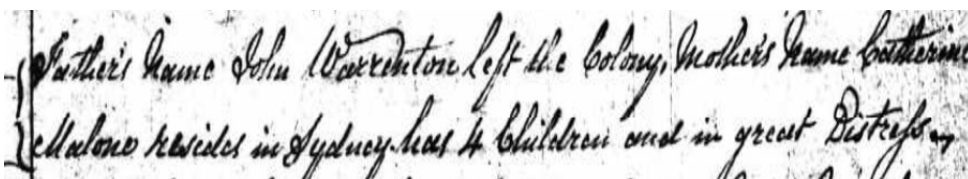 Father's Name John Warrenton left the Colony, Mother's Name Catherine
Malone resides in Sydney has 4 Children and in great Distress